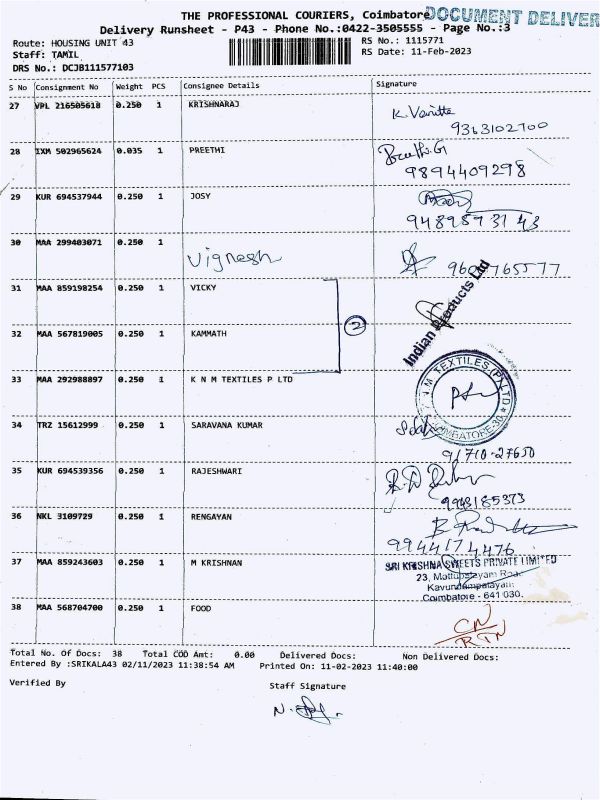 THE PROFESSIONAL COURIERS, Coimbatore
DOCUMENT DELIVER
Delivery Runsheet - P43 - Phone No.:0422-3505555 - Page No.:3
Route: HOUSING UNIT 43
RS No.: 1115771
Staff: TAMIL
RS Date: 11-Feb-2023
DRS No.: DCJB111577103
S No Consignment No Weight PCS Consignee Details Signature
27 VPL 216505618 0.250 1 KRISHNARAJ
K. Vanitha
9363102700
28 IXM 502965624 0.035 1 PREETHI
Preethi.G
9894409298
29 KUR 694537944 0.250 1 JOSY
9489593143
30 MAA 299403071 0.250 1
Vignesh
31 MAA 859198254 0.250 1 VICKY
Indian Products Ltd
2
32 MAA 567819005 0.250 1 KAMMATH
33 MAA 292988897 0.250 1 K N M TEXTILES P LTD
N M TEXTILES (P) LTD
COIMBATORE-30
34 TRZ 15612999 0.250 1 SARAVANA KUMAR
91710-27650
35 KUR 694539356 0.250 1 RAJESHWARI
9943185373
36 NKL 3109729 0.250 1 RENGAYAN
9944174476
37 MAA 859243603 0.250 1 M KRISHNAN
SRI KRISHNA SWEETS PRIVATE LIMITED
23, Mettupalayam Road
Kavundampalayam
Coimbatore - 641 030.
38 MAA 568704700 0.250 1 FOOD
CN
RTN
Total No. Of Docs: 38 Total COD Amt: 0.00 Delivered Docs: Non Delivered Docs:
Entered By :SRIKALA43 02/11/2023 11:38:54 AM Printed On: 11-02-2023 11:40:00
Verified By
Staff Signature